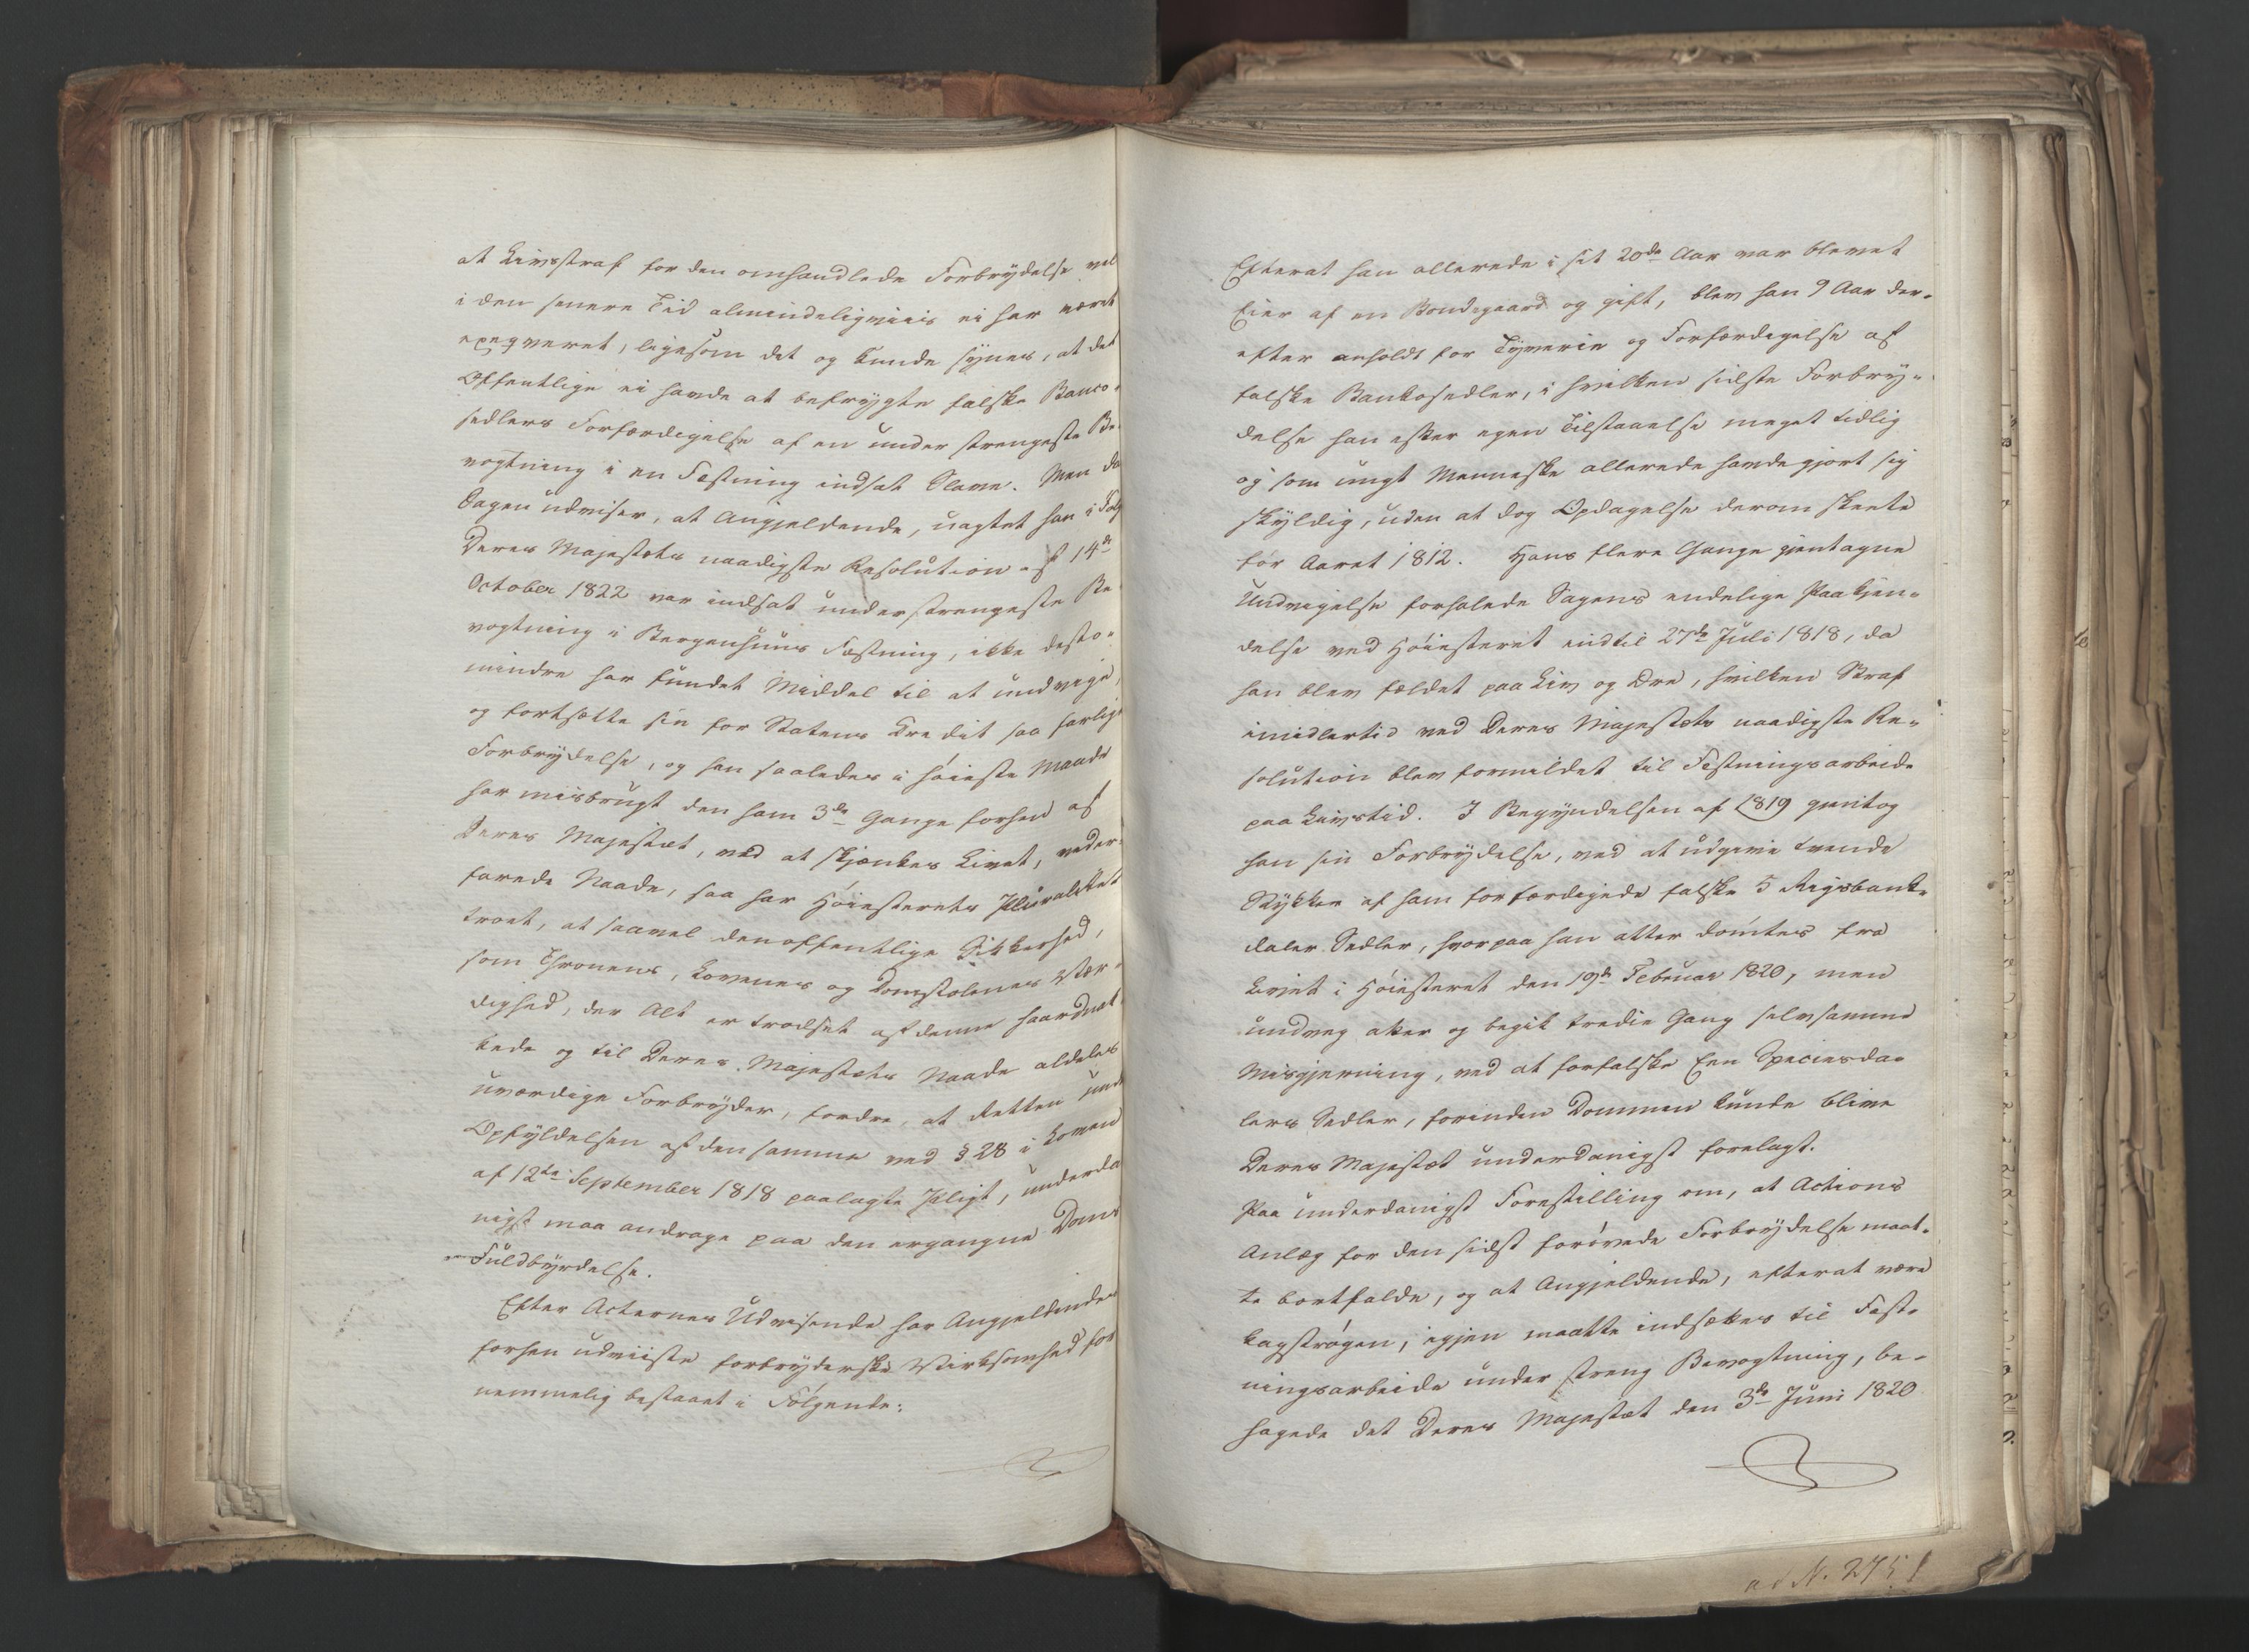 at Livsstraf for den omhandlede Forbrydelse vel
i den senere Tid almindeligviis ei har været
exeqveret, ligesom det og kunde synes, at det
Offentlige ei havde at befrygte falske Banco-
sedlers Forfærdigelse af en under strengeste Be-
vogtning i en Fæstning indsat Slave. Men da
Sagen udviser, at Angjeldende, uagtet han i Følge
Deres Majestæts naadigste Resolution af 14de
October 1822 var indsat under strengeste Be-
vogtning i Bergenhuus Fæstning, ikke desto-
mindre har fundet Middel til at undvige,
og fortsætte sin for Statens Credit saa farlige
Forbrydelse, og han saaledes i høieste Maade
har misbrugt den ham 3de Gange forhen af
Deres Majestæt, ved at skjænkes Livet, veder-
farede Naade, saa har Høiesterets Pluralitet
troet, at saavel den offentlige Sikkerhed,
som Thronens, Lovenes og Domstolenes Vær-
dighed, der Alt er trodset af denne haardnak-
kede og til Deres Majestæts Naade aldeles
uværdige Forbryder, fordre, at Retten under
Opfyldelsen af den samme ved § 28 i Loven
af 12te September 1818 paalagte Pligt, underda-
nigst maa andrage paa den ergangne Doms
Fuldbyrdelse.
Efter Acternes Udvisende har Angjeldendes
forhen udviiste forbryderske Virksomhed for-
nemmelig bestaaet i Følgende:
Efterat han allerede i sit 20de Aar var blevet
Eier af en Bondegaard og gift, blev han 9 Aar der-
efter anholdt for Tyverie og Forfærdigelse af
falske Bankosedler, i hvilken sidste Forbry-
delse han efter egen Tilstaaelse meget tidlig
og som ungt Menneske allerede havde gjort sig
skyldig, uden at dog Opdagelse derom skeete
før Aaret 1812. Hans flere Gange gjentagne
Undvigelse forhalede Sagens endelige Paakjen-
delse ved Høiesteret indtil 27de Juli 1818, da
han blev fældet paa Liv og Ære, hvilken Straf
imidlertid ved Deres Majestæts naadigste Re-
solution blev formildet til Fæstningsarbeide
paa Livstid. I Begyndelsen af 1819 gjentog
han sin Forbrydelse, ved at udgive tvende
Stykker af ham forfærdigede falske 5 Rigsbank-
daler Sedler, hvorpaa han atter dømtes fra
Livet i Høiesteret den 19de Februar 1820, men
undveg atter og begik tredie Gang selvsamme
Misgjerning, ved at forfalske Een Speciesda-
lers Sedler, forinden Dommen kunde blive
Deres Majestæt underdanigst forelagt.
Paa underdanigst Forestilling om, at Actions
Anlæg for den sidst forøvede Forbrydelse maat-
te bortfalde, og at Angjeldende, efterat være
kagstrøgen, igjen maatte indsættes til Fæst-
ningsarbeide under streng Bevogtning, be-
hagede det Deres Majestæt den 3de Juni 1820
ad N. 275